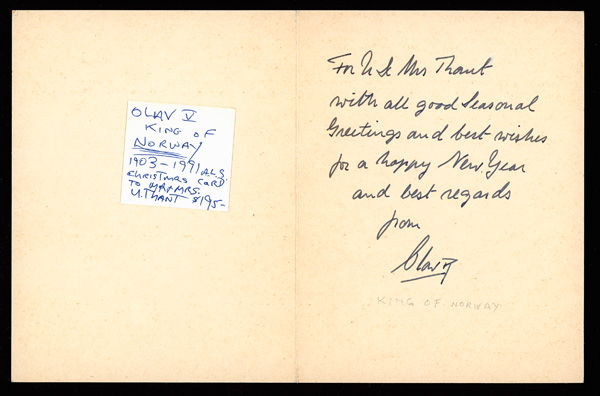 OLAV V
KING OF
NORWAY
1903-1991 ALS
CHRISTMAS CARD
TO MR & MRS.
U. THANT $195-
For U & Mrs Thant
with all good Seasonal
Greetings and best wishes
for a happy New Year
and best regards
from
Olav R
KING OF NORWAY